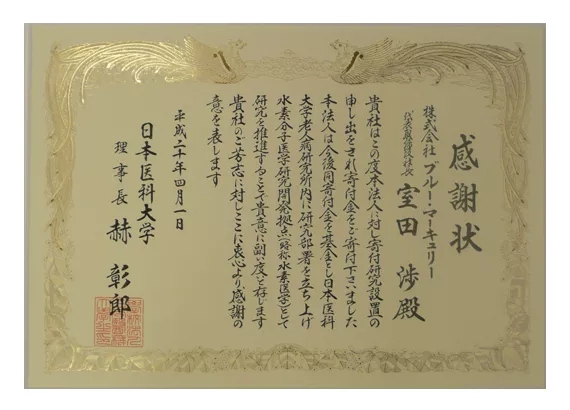 感謝状
株式会社 ブルー・マーキュリー
代表取締役社長
室田 渉 殿
貴社はこの度本法人に対し寄付研究設置の
申し出をされ寄付金をご寄付下さいました
本法人は今後同寄付金を基金とし日本医科
大学老人病研究所内に研究部署を立ち上げ
水素分子医学研究開発拠点(略称水素医学)として
研究を推進することで貴意に副い度いと存じます
貴社のご芳志に対しここに衷心より感謝の
意を表します
平成二十年四月一日
日本医科大学
理事長 赫 彰郎